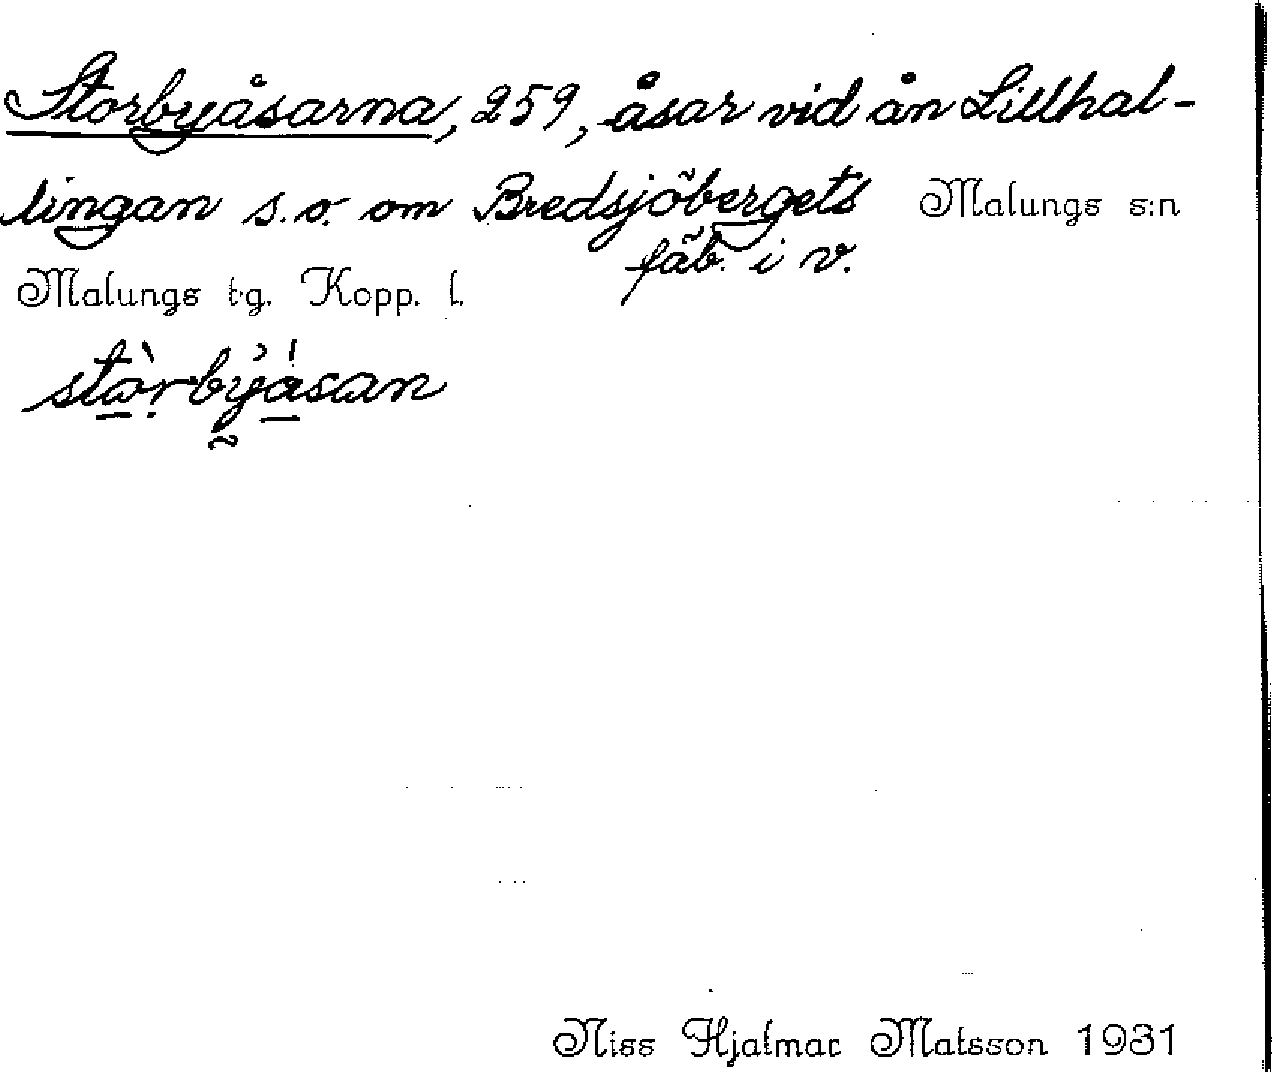 Storbyåsarna, 259, åsar vid ån Lillhal-
lingan s.o. om Bredsjöbergets Malungs s:n
fäb. i v.
Malungs tg. Kopp. l.
stòrbýásan
Niss Hjalmar Matsson 1931